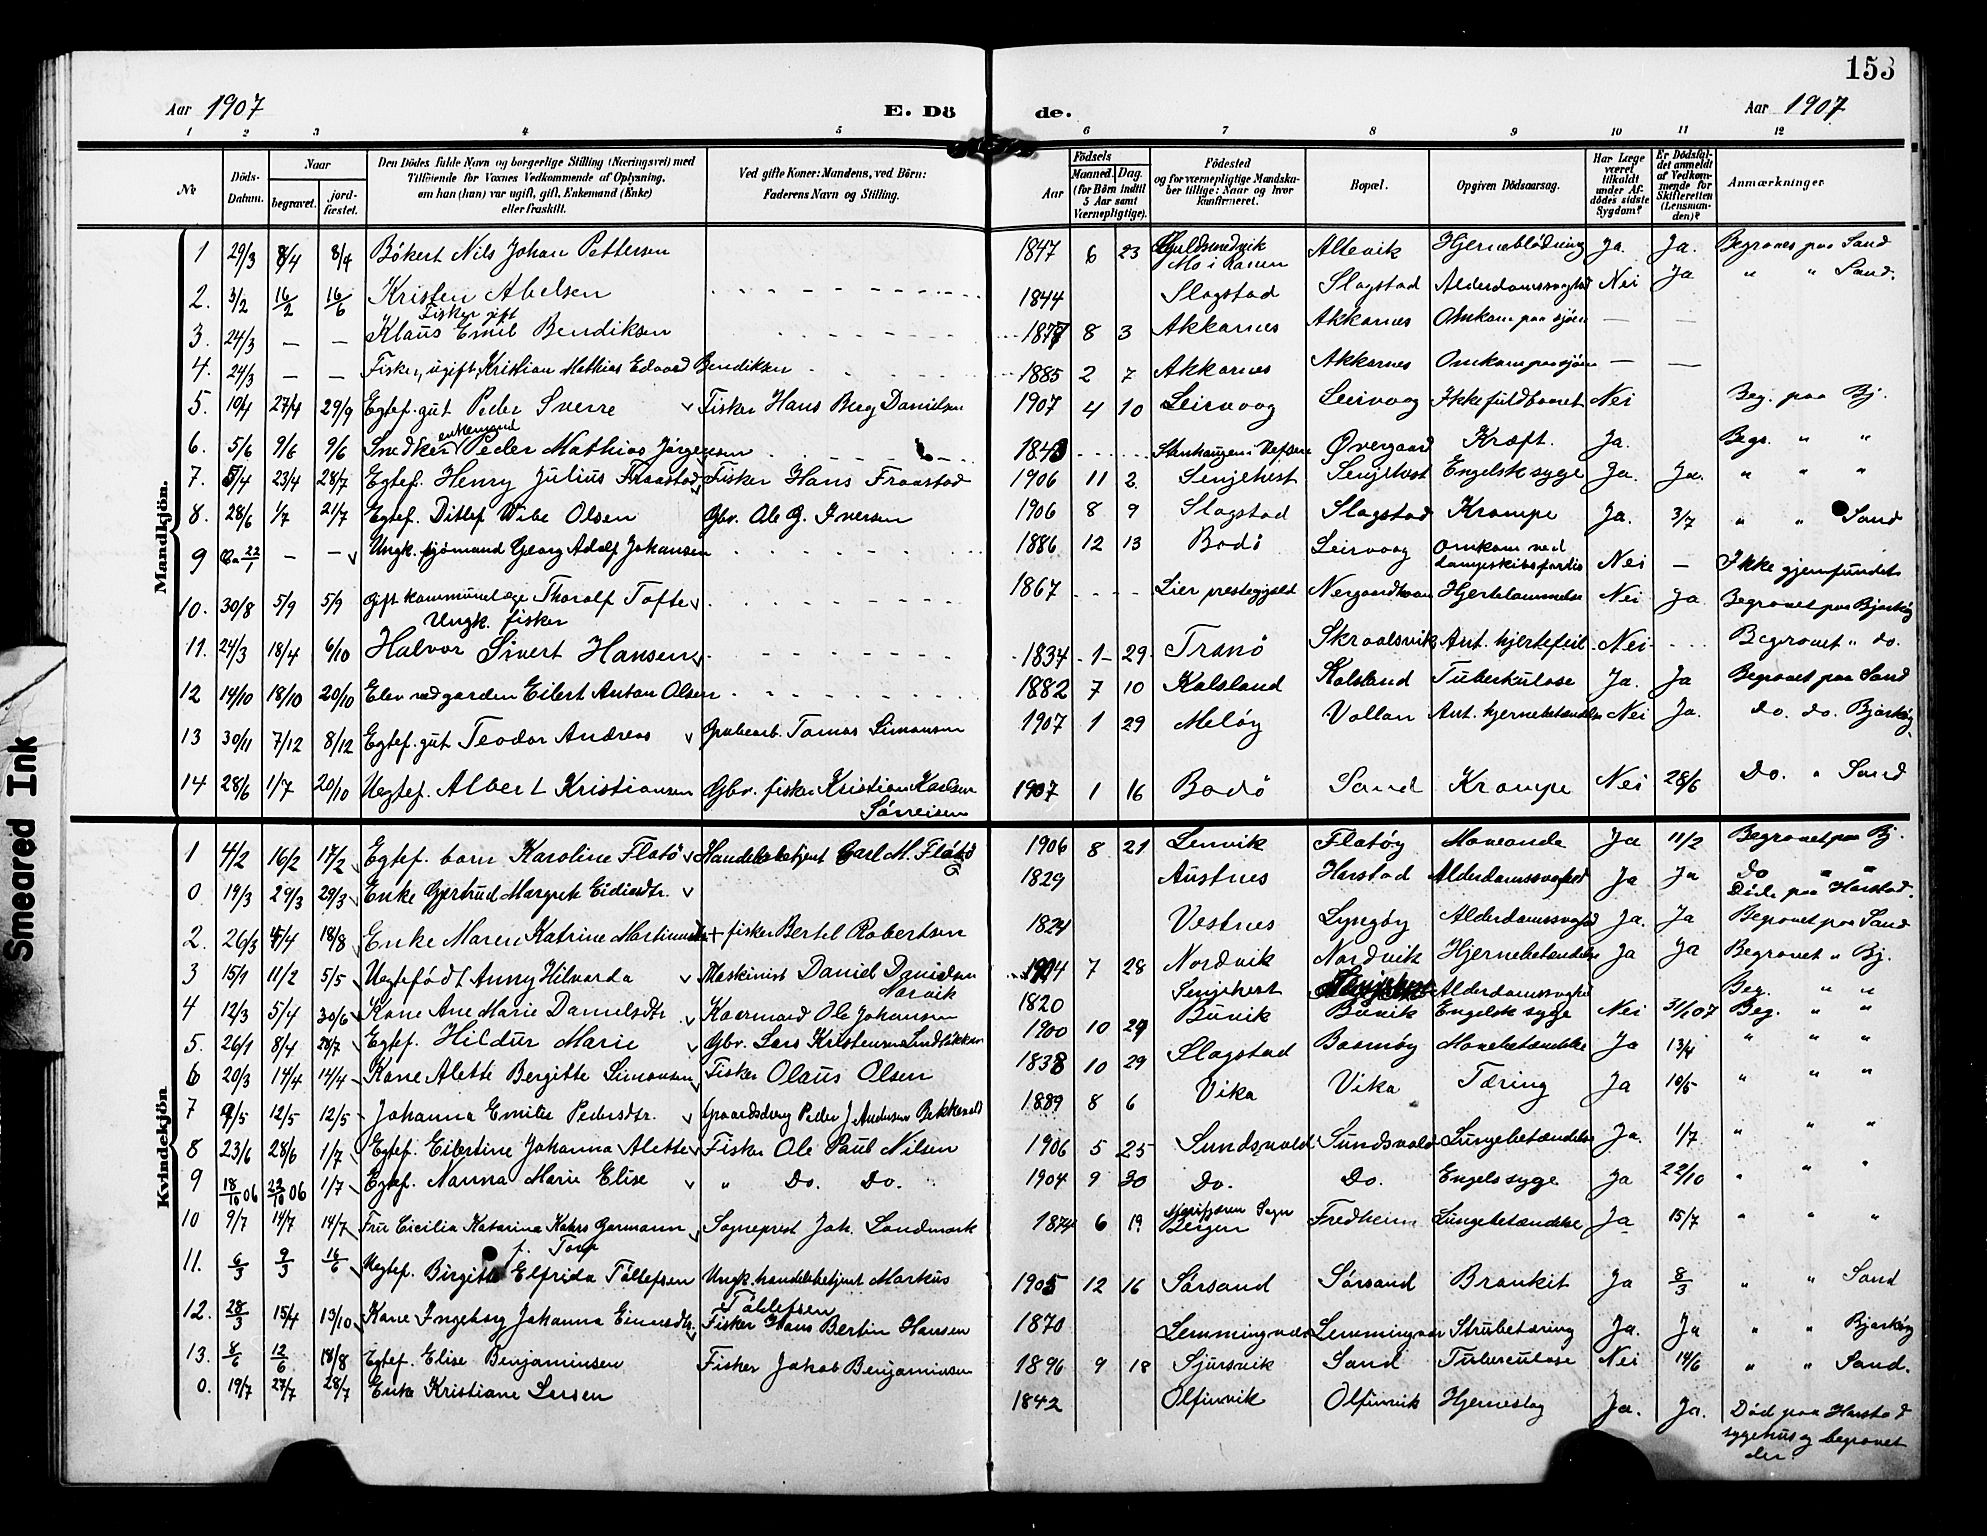 153
Aar 1907 E. Dö de. Aar 1907
1 2 3 4 5 6 7 8 9 10 11 12
No Döds-Datum. Naar begravet. jord-fæstet. Den Dödes fulde Navn og borgerlige Stilling (Næringsvei) med Tilföiende for Voxnes Vedkommende af Oplysning, om han (hun) var ugift, gift, Enkemand (Enke) eller fraskilt. Ved gifte Koner: Mandens, ved Börn: Faderens Navn og Stilling. Aar Födsels Maaned. Dag. (for Börn indtil 5 Aar samt Værnepligtige). Födested og for værnepligtige Mandskaber tillige: Naar og hvor konfirmeret. Bopæl. Opgiven Dödsaarsag. Har Læge været tilkaldt under Afdödes sidste Sygdom? Er Dödsfaldet anmeldt af Vedkommende for Skifteretten (Lensmanden)? Anmærkninger
Mandkjön.
1 29/3 8/4 8/4 Bökert Nils Johan Pettersen 1847 6 23 Mo i Ranen Altevik Hjerneblödning Ja. Ja. Begraves paa Sand
2. 3/2 16/2 16/6 Kristen Abelsen 1844 Slagstad Slagstad Alderdomssvaghed Nei Ja " " Sand.
Fisker gift
3. 24/3 — — Klaus Emil Bendiksen 1877 8 3 Akkarnes Akkarnes Omkom paa sjöen — —
4. 24/3 — — Fisker, ugift, Kristian Mathias Edvard Bendiksen 1885 2 7 Akkarnes Akkarnes Omkom paa sjöen — —
5. 10/4 27/4 29/9 Egtef. gut Peder Sverre Fisker Hans Berg Danielsen 1907 4 10 Leirvaag Leirvaag Ikke fuldbaaret Nei Beg. paa Bj.
enkemand
6. 5/6 9/6 9/6 Snedker Peder Mathias Jörgensen 1843 Stenhaugen i Vefsen Övergaard Kræft. Ja. Begr. " "
7. 5/4 23/4 28/7 Egtef. Henry Julius Fraastad Fisker Hans Fraastad 1906 11 2 Senjehest Senjehest Engelsk syge Ja. Ja. " " "
8. 28/6 1/7 21/7 Egtef. Ditlef Wibe Olsen Gbr. Ole G. Iversen 1906 8 9 Slagstad Slagstad Krampe Ja. 3/7 " " Sand
9 Ca 22/1 — — Ungk. sjömand Georg Adolf Johansen 1886 12 13 Bodö Leirvaag Omkom ved dampskibsforlis Nei — Ikke gjenfundet
10. 30/8 5/9 5/9 Gift kommunelæge Thoralf Tofte 1867 Lier prestegjeld Nergaardhavn Hjertelammelse Nei Ja Begravet paa Bjarköy
Ungk. fisker
11. 24/3 18/4 6/10 Halvor Sivert Hansen 1834 1 29 Tranö Skrovlsvik Ant. hjertefeil Nei Begravet " do.
12 14/10 18/10 20/10 Elev ved garden Eilert Antan Olsen 1882 7 10 Kalsland Kalsland Tuberkulose Ja. Ja Begravet paa Sand
13 30/11 7/12 8/12 Egtef. gut Teodor Andreas Grubearb. Tomas Simonsen 1907 1 29 Melöy Vollan Ant. hjernebetændelse Nei Ja. do. do. Bjarköy.
14 28/6 1/7 20/10 Uegtef. Albert Kristiansen Gbr. fisker Kristian Karlsen Sörreisen 1907 1 16 Bodö Sand Krampe Nei 28/6 Do. " Sand
Kvindekjön.
1 4/2 16/2 17/2 Egtef. barn Karoline Flatö Handelsbetjent Carl M. Flatö 1906 8 21 Lenvik Flatöy Maveonde Ja 11/2 Begravet paa Bj.
0. 19/3 29/3 29/3 Enke Gjertrud Margrete Eidisdtr. 1829 Austnes Harstad Alderdomssvaghed Ja Ja Do " "
Död paa Harstad.
2. 26/3 4/4 18/8 Enke Maren Katrine Martinusdtr + fisker Bertel Robertsen 1824 Vestnes Lysegöy Alderdomssvaghed Ja. Ja Begravet paa Sand
3 15/1 11/2 5/5 Uegtefödt Anny Hilvarda Maskinist Daniel Danielsen Narvik 7 28 Nordvik Nordvik Hjernebetændelse Ja Ja Begravet " Bj.
4 12/3 5/4 30/6 Kone Ane Marie Danielsdtr. Kaarmand Ole Johansen 1820 Senjehest Alderdomssvaghed Beg. " "
5. 26/1 8/4 28/7 Egtef. Hildur Marie Gbr. Lars Kristensen Lundlökken 1900 10 29 Buvik Buvik Engelsk syge Nei 31/1 07 Beg. " "
6 20/3 14/4 14/4 Kone Alette Bergitte Simonsen Fisker Olaus Olsen 1838 10 29 Slagstad Mavebetændelse Ja 13/4 " " "
7 9/5 12/5 12/5 Johanna Emilie Pedersdtr. Gaardsdreng Peder J. Andersen Bekkevold 1889 8 6 Vika Vika Tæring Ja 10/5 " " "
8 23/6 28/6 1/7 Egtef. Eilertine Johanna Alette Fisker Ole Paul Nilsen 1906 5 25 Sundsvold Sundsvold Lungebetændelse Ja. 1/7 " " "
9 18/10 06 22/10 06 1/7 Egtef. Nanna Marie Elise " Do. Do. 1904 9 30 Do. Do. Engelsk syge Ja 22/10 " " "
10 9/7 14/7 14/7 Fru Cicilia Katarina Kahrs Garmann Sogneprest Joh. Landmark 1874 6 19 Bergen Fredheim Lungebetændelse Ja 15/7 " " "
f. Torp
11. 6/3 9/3 16/6 Uegtef. Birgitte Elfrida Tollefsen Ungk. handelsbetjent Markus Tollefsen 1905 12 16 Sörsand Sörsand Bronkit Ja 8/3 " " Sand
12. 28/3 15/4 13/10 Kone Ingeborg Johanna Einardtr. Fisker Hans Bertin Hansen 1870 Lemmingvær Lemmingvær Strubetæring Ja. Ja " " Bjarköy
13. 8/6 12/6 18/8 Egtef. Elise Benjaminsen Fisker Jakob Benjaminsen 1896 9 18 Sjursvik Sand Tuberculose Nei 14/6 " " Sand.
0. 19/7 27/7 28/7 Enke Kristiane Larsen 1842 Olfinvik Olfinvik Hjerneslag Ja. Ja. Död paa Harstad
sygehus og begravet
der.
Smeared Ink